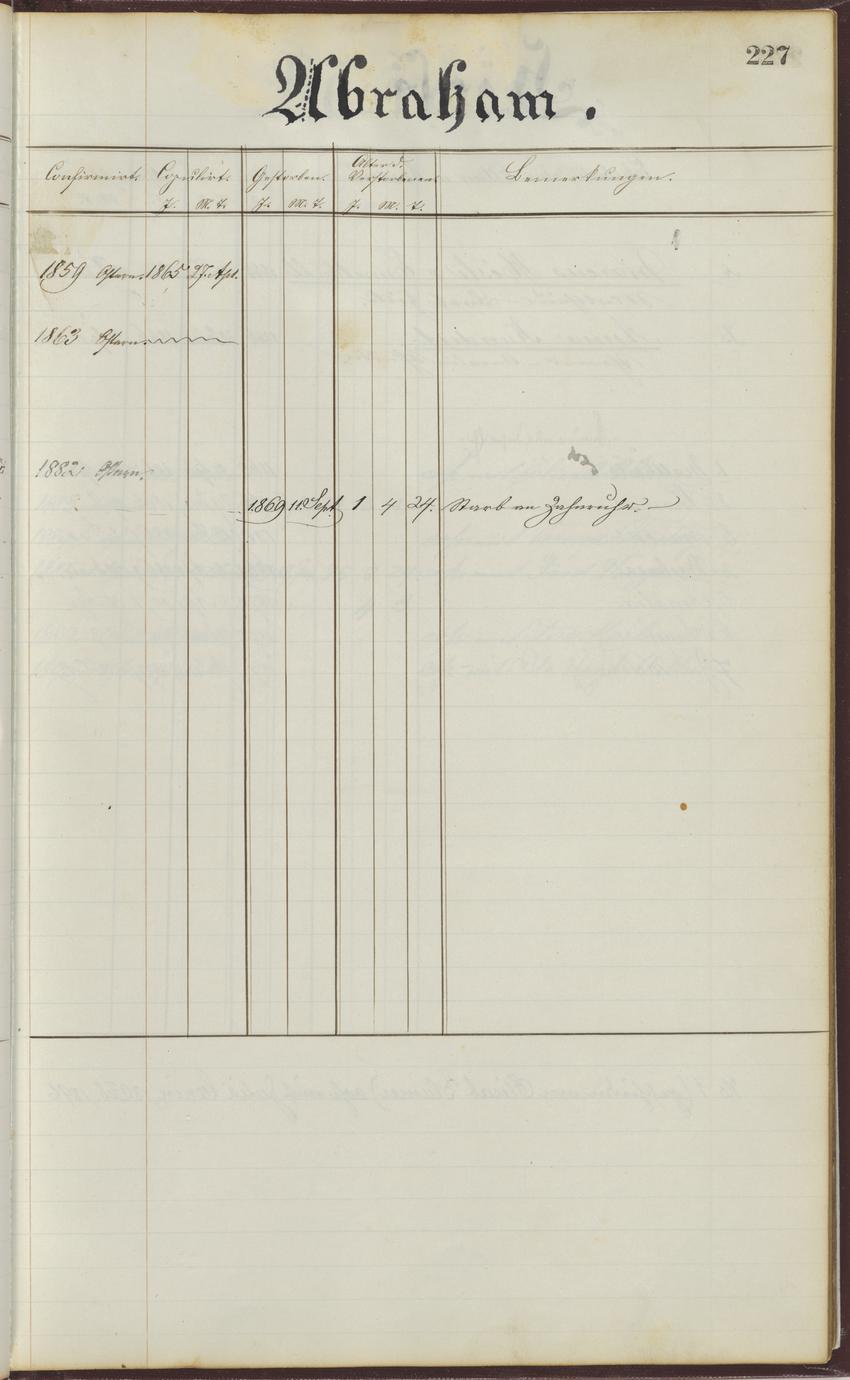 227
Abraham.
Confirmirt. Copulirt. Gestorben. Alter d. Verstorbenen. Bemerkungen.
J. M. T. J. M. T. J. M. T.
1859 Ostern. 1865 27. Apl.
1863 Ostern.
1882 Ostern.
1869 11. Sept. 1 4 24. Starb an Zahnruhr.